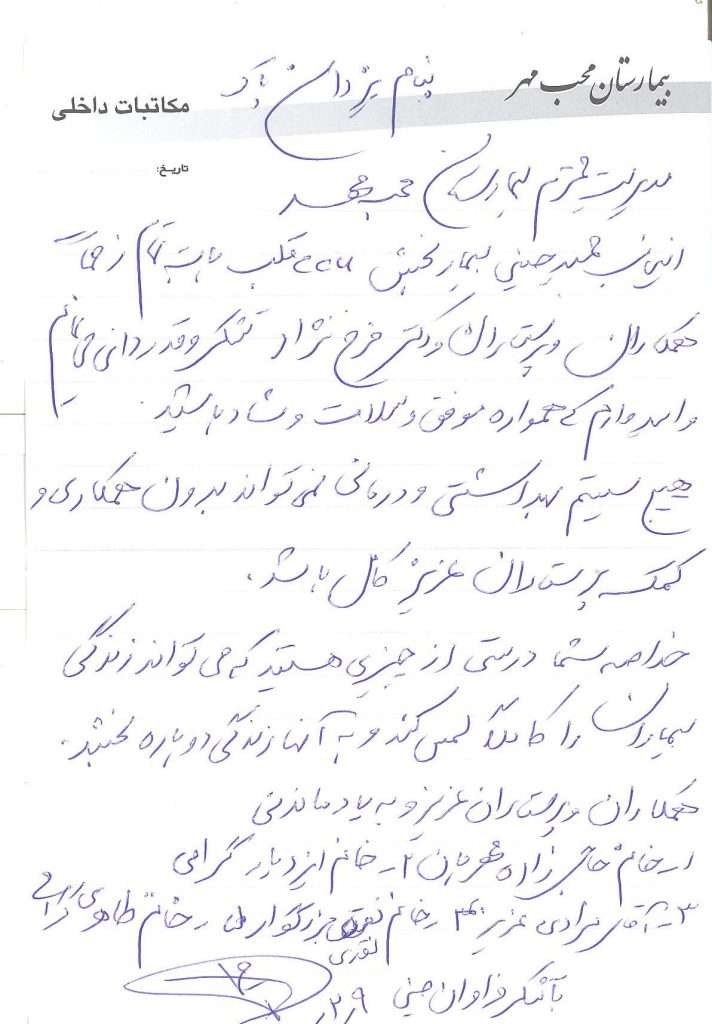 بیمارستان محب مهر
بنام یزدان پاک
مکاتبات داخلی
تاریخ:
مدیریت محترم بیمارستان محب مهر
اینجانب چینی بیمار بخش ccu قلب بابت تمام زحمات
همکاران و پرستاران و دکتر فرخ نژاد تشکر و قدردانی می نمایم
و امیدوارم که همواره موفق و سلامت و شاد باشید.
هیچ سیستم بهداشتی و درمانی نمی تواند بدون همکاری و
کمک پرستاران عزیز کامل باشد.
خدا شما درستی از چیزی هستید که می تواند زندگی
بیماران را کاملاً لمس کند و به آنها زندگی دوباره بخشد.
همکاران و پرستاران عزیز و به یاد ماندنی
۱- خانم زاده مهربان ۲- خانم ایزدیار گرامی
۳- آقای مرادی عزیز ۴- خانم بزرگوار - خانم طاهری
نوری
با تشکر فراوان چینی